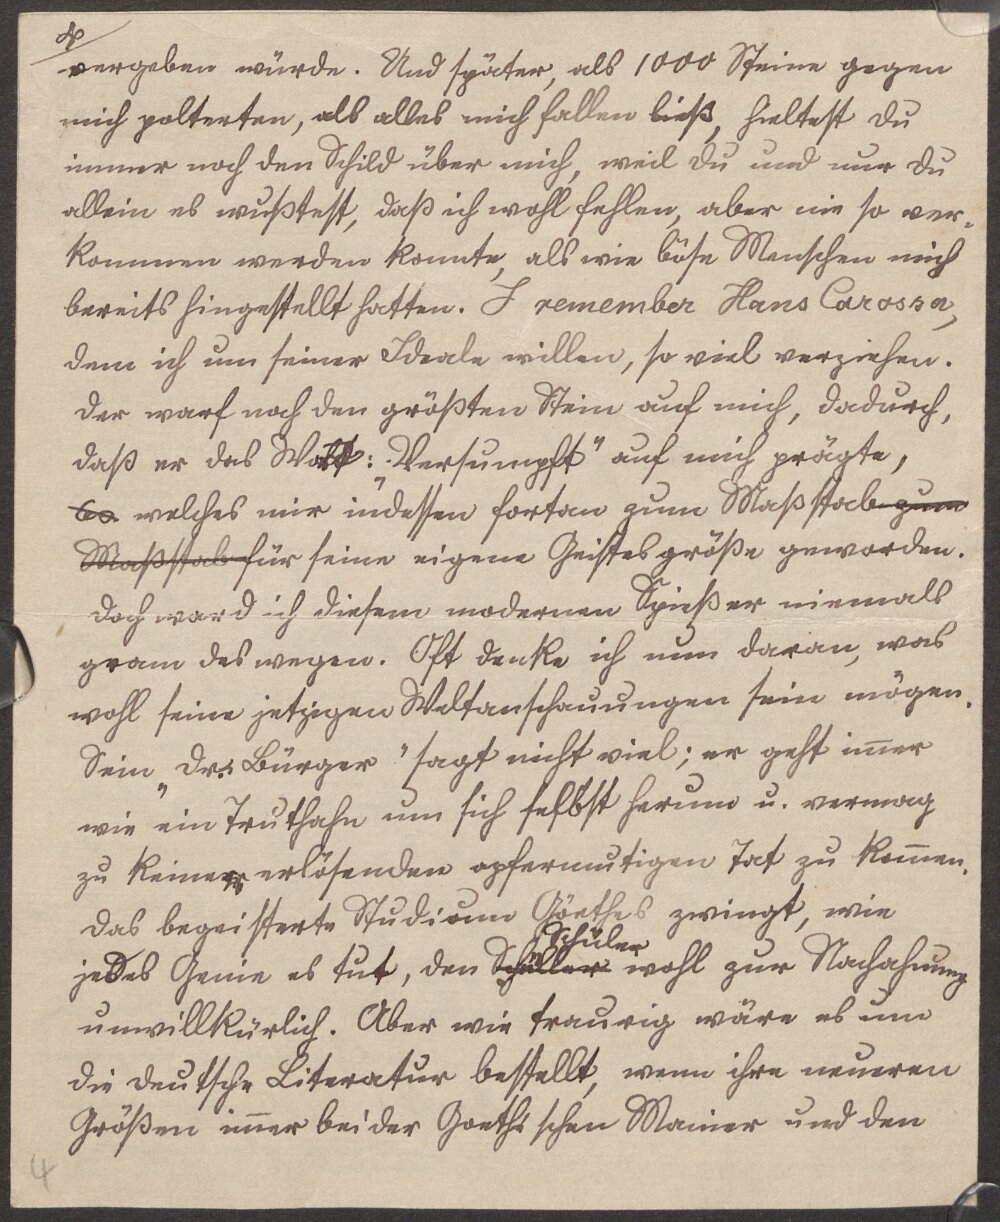 4
vergeben würde. Und später, als 1000 Steine gegen
mich polterten, als alles mich fallen ließ, hieltest du
immer noch den Schild über mich, weil du und nur du
allein es wußtest, daß ich wohl fehlen, aber nie so ver-
kommen werden konnte, als wie böse Menschen mich
bereits hingestellt hatten. I remember Hans Carossa,
dem ich um seiner Ideale willen, so viel verziehen.
Der warf noch den größten Stein auf mich, dadurch,
daß er das Wort: „Versumpft" auf mich prägte,
welches mir indessen fortan zum Maßstab zum
Maßstab für seine eigene Geistesgröße geworden.
Doch ward ich diesem modernen Spießer niemals
gram deswegen. Oft denke ich nun daran, was
wohl seine jetzigen Weltanschauungen sein mögen.
Sein „Dr. Bürger" sagt nicht viel; er geht im̄er
wie ein Truthahn um sich selbst herum u. vermag
zu keiner erlösenden opfermutigen Tat zu kom̄en.
Das begeisterte Studium Göethes zwingt, wie
Schüler
jedes Genie es tut, den Schüller wohl zur Nachahmung
unwillkürlich. Aber wie traurig wäre es um
die deutsche Literatur bestellt, wenn ihre neueren
Größen im̄er bei der Goethe'schen Manier und den
4